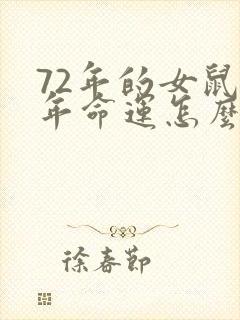 72年的女鼠
年命运怎麽
徐春節